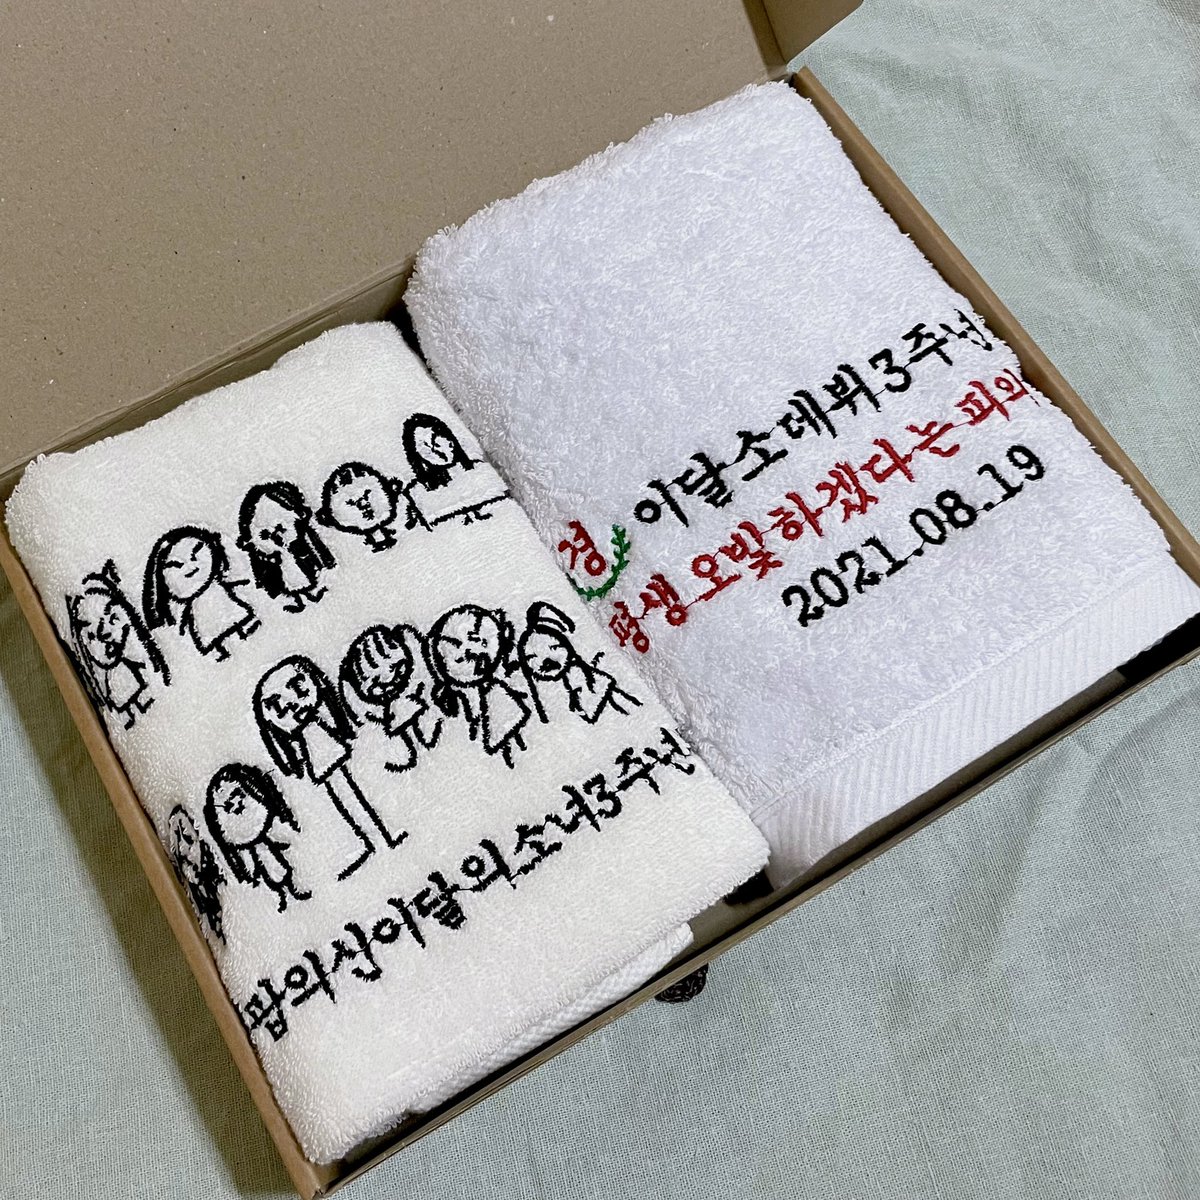 팝의신이달의소녀3주년
경
이달소데뷔3주년
평생오빛하겠다는피의
2021.08.19